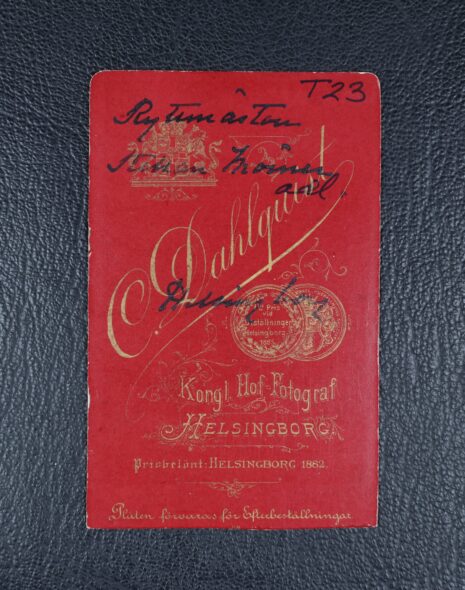 T23
Rytmästou
adl.
Dahlquist
Helsingborg
Pris
vid
Utställningen
Helsingborg
Kongl. Hof-Fotograf
HELSINGBORG.
Prisbelönt: HELSINGBORG 1882.
Plåten förvaras för Efterbeställningar